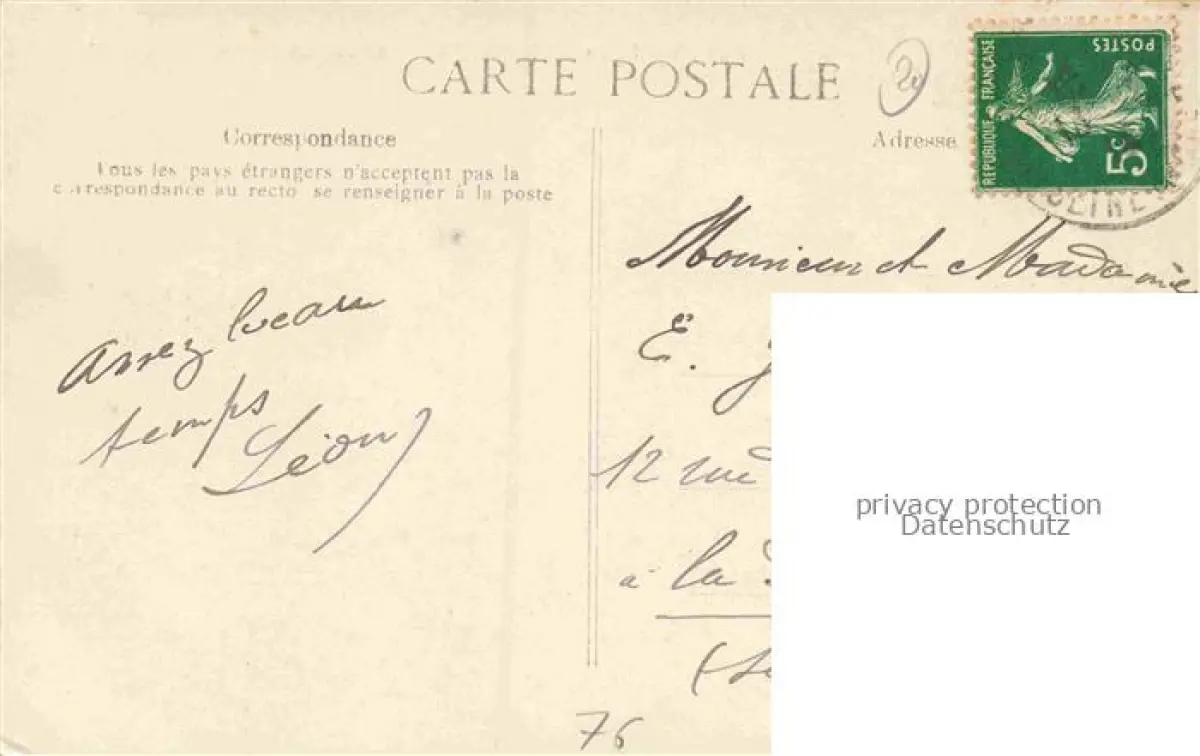 CARTE POSTALE
24
Correspondance
Tous les pays étrangers n'acceptent pas la
correspondance au recto se renseigner à la poste
Adresse
REPUBLIQUE FRANÇAISE
POSTES
5c
Monsieur et Madame
E.
12 rue
à la
assez beau
temps
Léon
76
privacy protection
Datenschutz